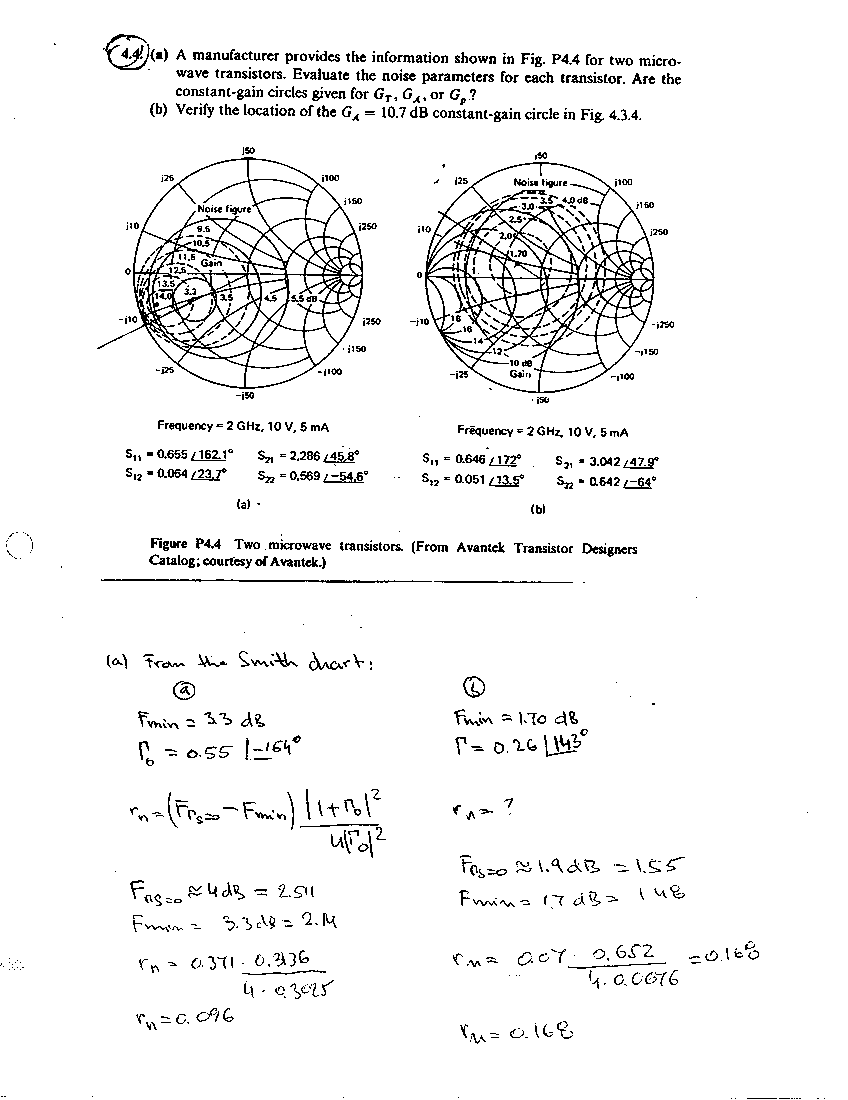 4.4. (a) A manufacturer provides the information shown in Fig. P4.4 for two micro-
wave transistors. Evaluate the noise parameters for each transistor. Are the
constant-gain circles given for G_T, G_A, or G_p?
(b) Verify the location of the G_A = 10.7 dB constant-gain circle in Fig. 4.3.4.
j50
j25
j100
j150
j250
j10
0
-j10
-j25
-j50
-j100
-j150
-j250
Noise figure
9.5
10.5
11.5
Gain
12.5
13.5
14.0
3.3
3.5
4.5
5.5 dB
j50
j25
j100
j150
j250
j10
0
-j10
-j25
j50
-j100
-j150
-j250
Noise figure
3.5
4.0 dB
3.0
2.5
2.0
1.70
16
16
14
12
10 dB
Gain
Frequency = 2 GHz, 10 V, 5 mA
S11 = 0.655 ∠162.1° S21 = 2.286 ∠45.8°
S12 = 0.064 ∠23.7° S22 = 0.569 ∠-54.6°
(a)
Frequency = 2 GHz, 10 V, 5 mA
S11 = 0.646 ∠172° S21 = 3.042 ∠47.9°
S12 = 0.051 ∠13.5° S22 = 0.642 ∠-64°
(b)
Figure P4.4 Two microwave transistors. (From Avantek Transistor Designers
Catalog; courtesy of Avantek.)
(a) From the Smith chart:
ⓐ
Fmin = 3.3 dB
Γo = 0.55 ∠-164°
rn = (FΓs=0 - Fmin) |1+Γo|² / 4|Γo|²
FΓs=0 ≈ 4 dB = 2.511
Fmin = 3.3 dB = 2.14
rn = 0.371 · 0.336 / 4 · 0.3025
rn = 0.096
ⓑ
Fmin = 1.70 dB
Γ = 0.26 ∠143°
rn = ?
FΓs=0 ≈ 1.9 dB = 1.55
Fmin = 1.7 dB = 1.48
rn = 0.07 · 0.652 / 4 · 0.0676 = 0.168
rn = 0.168